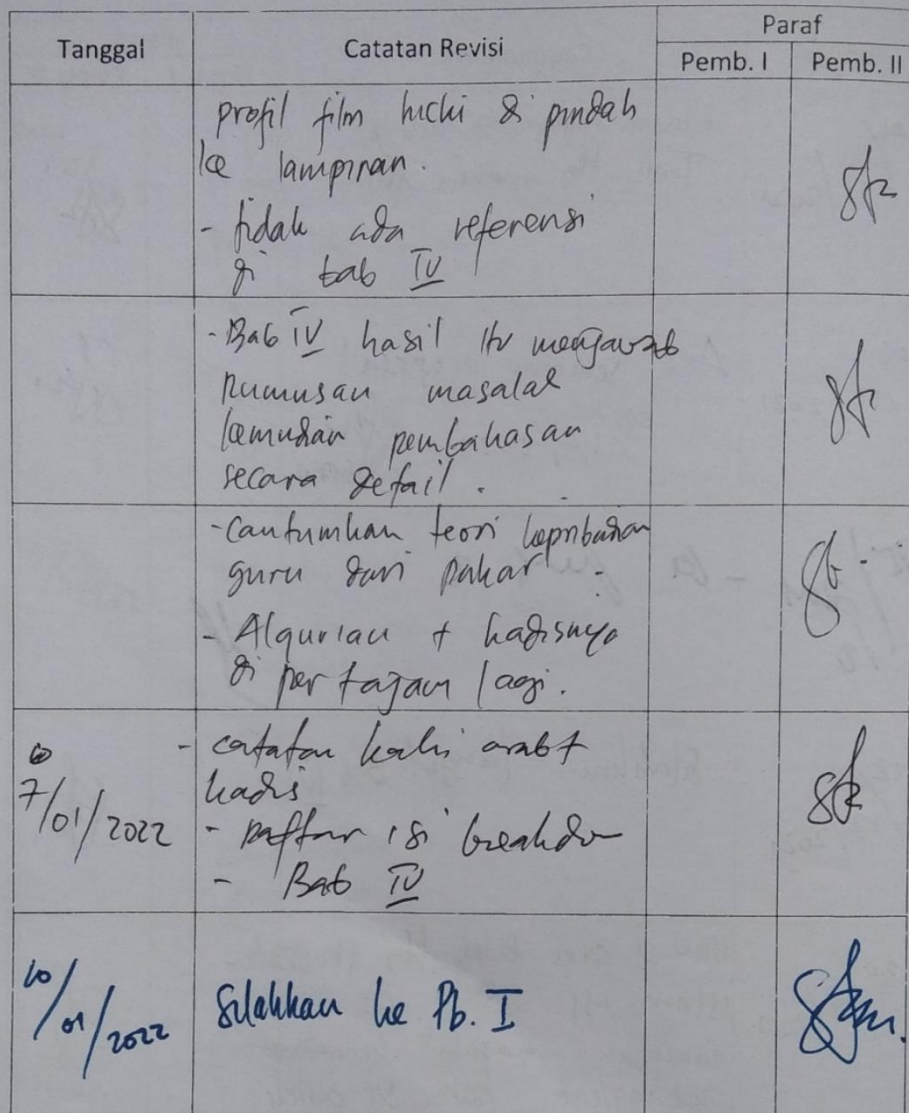 Tanggal
Catatan Revisi
Paraf
Pemb. I
Pemb. II
profil film hichi di pindah
ke lampiran.
- tidak ada referensi
di bab IV
- Bab IV hasil itu menjawab
Rumusan masalah
kemudian pembahasan
secara detail.
- Cantumkan teori kepribadian
guru dari pakar
- Alqur'an + hadisnya
di pertajam lagi.
7/01/2022
- catatan kaki arab +
hadis
- Daftar isi
- Bab IV
10/01/2022
Silahkan ke Pb. I